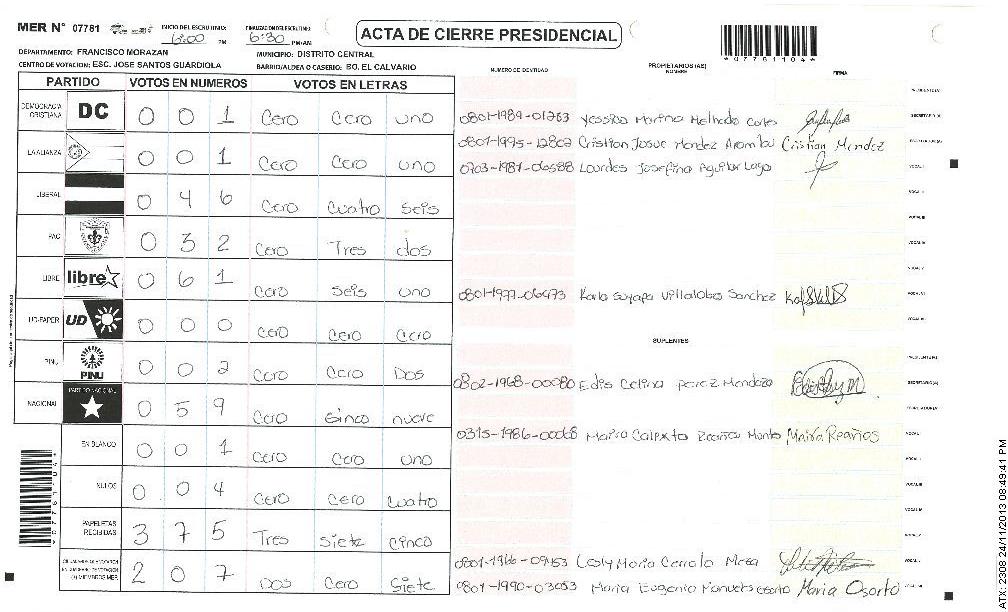 MER N° 07781 INICIO DEL ESCRUTINIO: 6:00 PM FINALIZACION DEL ESCRUTINIO: 6:30 PM/AM
ACTA DE CIERRE PRESIDENCIAL
*07781104*
DEPARTAMENTO: FRANCISCO MORAZAN MUNICIPIO: DISTRITO CENTRAL
CENTRO DE VOTACION: ESC. JOSE SANTOS GUARDIOLA BARRIO/ALDEA O CASERIO: BO. EL CALVARIO
NUMERO DE IDENTIDAD PROPIETARIOS (AS) NOMBRE FIRMA
PARTIDO VOTOS EN NUMEROS VOTOS EN LETRAS
DEMOCRACIA CRISTIANA DC 0 0 1 Cero Cero uno
LA ALIANZA 0 0 1 Cero Cero uno
LIBERAL 0 4 6 Cero Cuatro Seis
PAC 0 3 2 Cero Tres dos
LIBRE libre 0 6 1 Cero Seis uno
UD-FAPER UD 0 0 0 Cero Cero Cero
PINU PINU 0 0 2 Cero Cero Dos
NACIONAL PARTIDO NACIONAL 0 5 9 Cero Sinco nueve
EN BLANCO 0 0 1 Cero Cero uno
NULOS 0 0 4 Cero Cero Cuatro
PAPELETAS RECIBIDAS 3 7 5 Tres Siete Cinco
2 0 7 Dos Cero Siete
0801-1989-01263 Yessica Marina
SECRETARIO (A)
0801-1995-12802 Cristian Josue Mendez Cristian Mendez
0703-1987-06588 Lourdes Josefina Aguilar Lago
VOCAL I
VOCAL II
VOCAL III
VOCAL IV
VOCAL V
0801-1977-06473 Karla Suyapa Villalobos Sanchez
VOCAL VI
SUPLENTES
PRESIDENTE(A)
0802-1968-00080 Edis Celina Perez Mendoza
SECRETARIO(A)
0315-1986-00068 Maira
VOCAL I
0801-1966-09453 Lesly Maria Cerrato Meza
0801-1990-03053 Maria Eugenia Osorto Maria Osorto
ATX: 2308 24/11/2013 08:49:41 PM